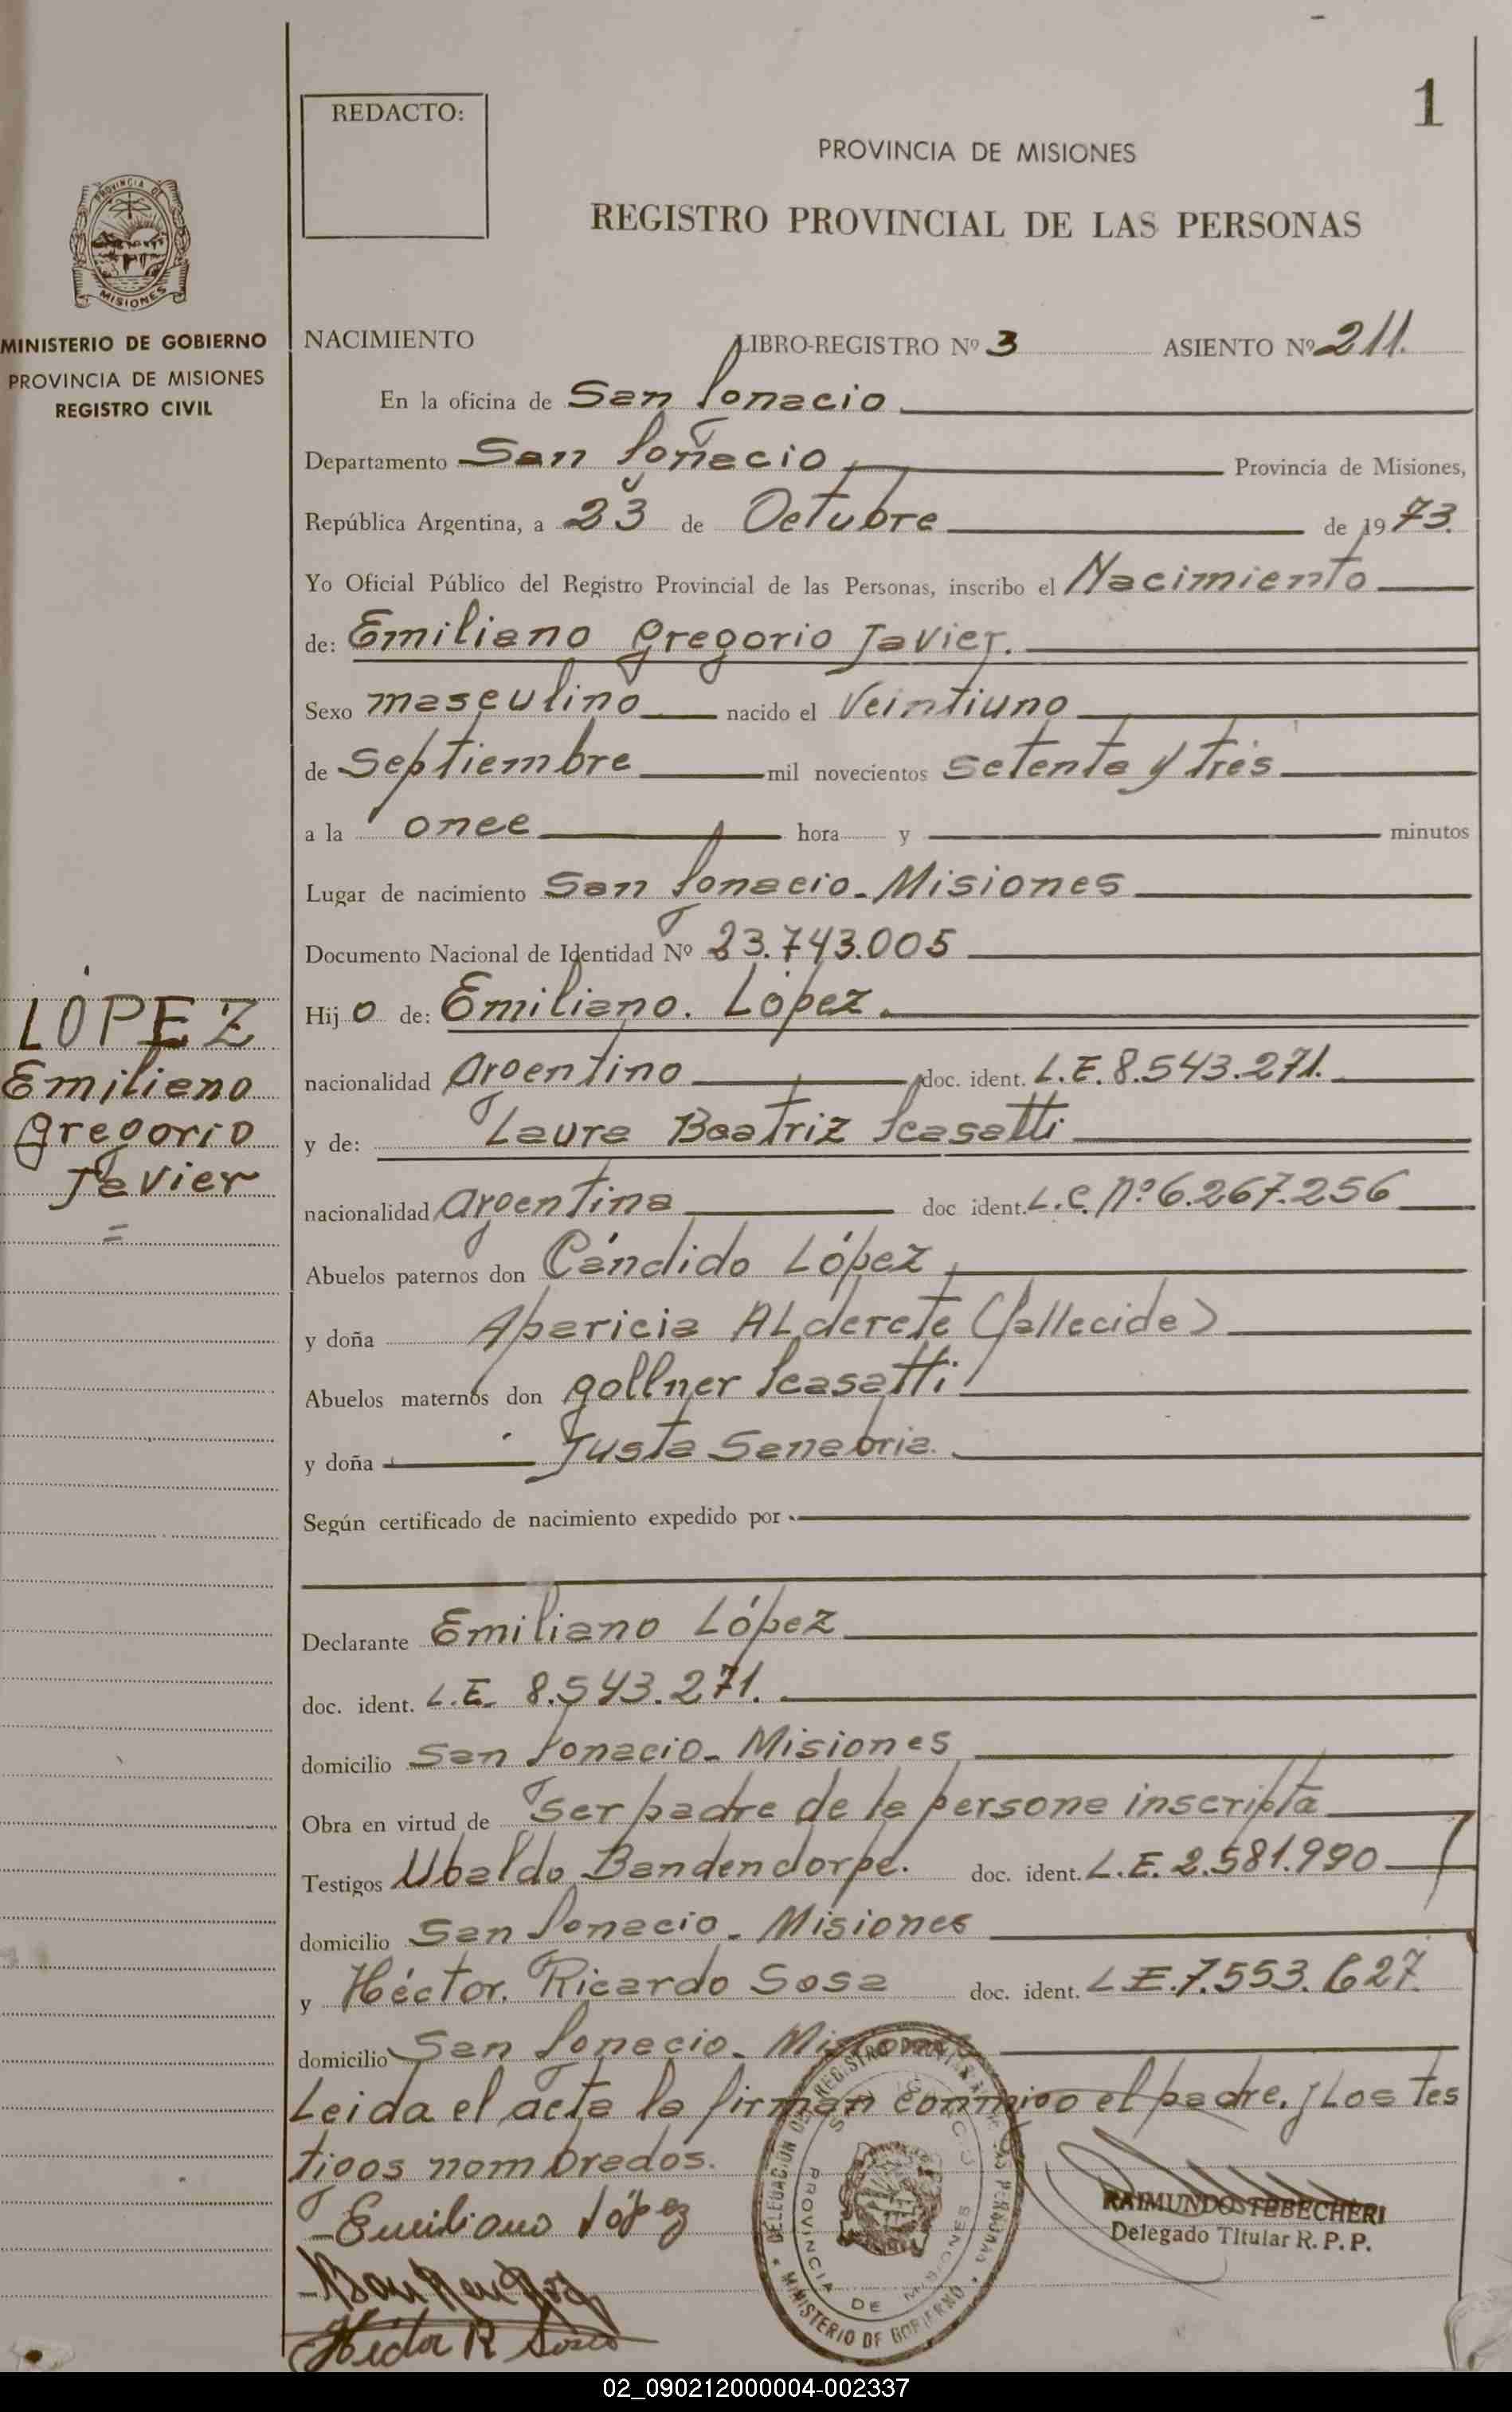 1
REDACTO:
PROVINCIA DE MISIONES
REGISTRO PROVINCIAL DE LAS PERSONAS
PROVINCIA DE
MISIONES
MINISTERIO DE GOBIERNO
PROVINCIA DE MISIONES
REGISTRO CIVIL
NACIMIENTO LIBRO-REGISTRO Nº 3 ASIENTO Nº 211.
En la oficina de San Ignacio
Departamento San Ignacio Provincia de Misiones,
República Argentina, a 23 de Octubre de 1973.
Yo Oficial Público del Registro Provincial de las Personas, inscribo el Nacimiento
de: Emiliano Gregorio Javier.
Sexo masculino nacido el Veintiuno
de Septiembre mil novecientos setenta y tres
a la once hora y minutos
Lugar de nacimiento San Ignacio - Misiones
Documento Nacional de Identidad Nº 23.743.005
LÓPEZ
Emiliano
Gregorio
Javier
=
Hijo de: Emiliano. López.
nacionalidad Argentino doc. ident. L.E. 8.543.271.
y de: Laura Beatriz Scasatti
nacionalidad Argentina doc ident. L.C. Nº 6.267.256
Abuelos paternos don Cándido López
y doña Aparicia ALderete (fallecida)
Abuelos maternos don Gollner Scasatti
y doña Justa Senabria.
Según certificado de nacimiento expedido por
Declarante Emiliano López
doc. ident. L.E. 8.543.271.
domicilio San Ignacio - Misiones
Obra en virtud de ser padre de la persona inscripta
Testigos Ubaldo Bandendorpe. doc. ident. L.E. 2.581.990
domicilio San Ignacio - Misiones
y Héctor. Ricardo Sosa doc. ident. L.E. 7.553.627.
domicilio San Ignacio - Misiones
Leida el acta la firman conmigo el padre, y Los tes
tigos nombrados.
Emiliano López
Héctor R Sosa
DELEGACIÓN DEL REGISTRO PROVINCIAL DE LAS PERSONAS
MINISTERIO DE GOBIERNO
PROVINCIA DE MISIONES
RAIMUNDO STEBECHERI
Delegado Titular R. P. P.
02_090212000004-002337